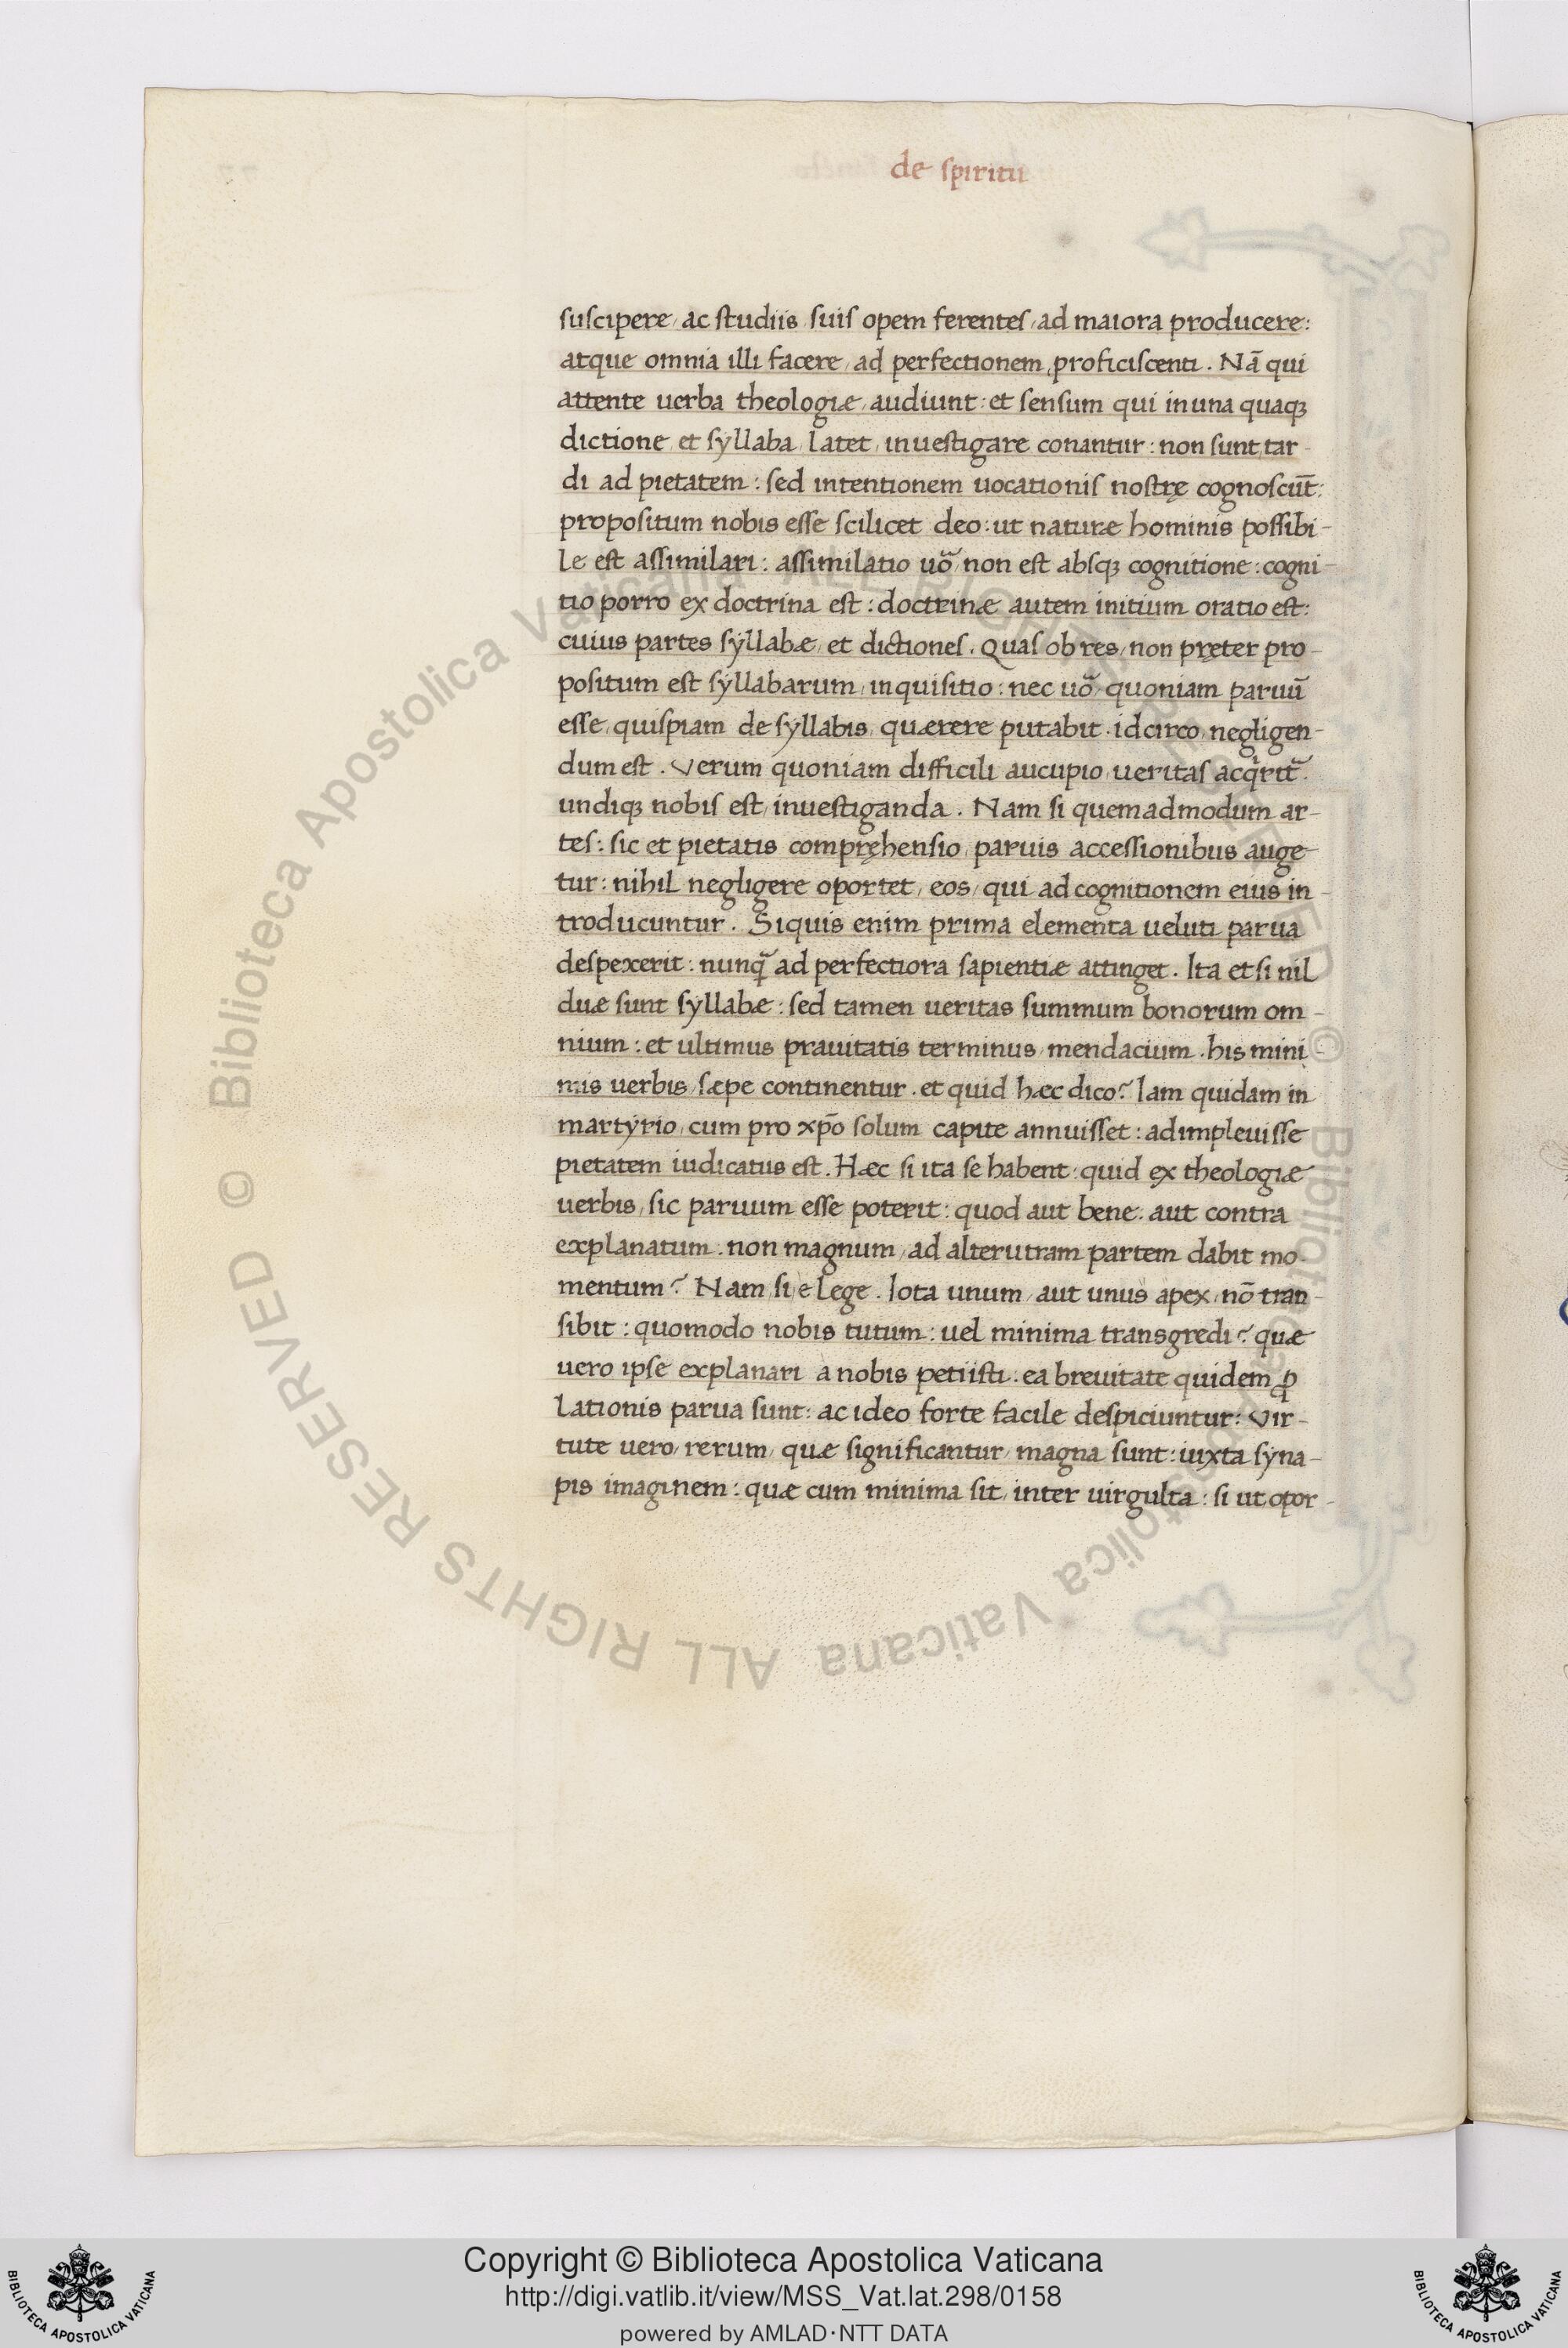 de spiritu
suscipere, ac studiis suis opem ferentes, ad maiora producere:
atque omnia illi facere, ad perfectionem, proficiscenti. Nā qui
attente uerba theologiæ, audiunt: et sensum qui in una quaqꝫ
dictione, et syllaba, latet, inuestigare conantur: non sunt, tar-
di ad pietatem: sed intentionem uocationis nostrę cognoscūt:
propositum nobis esse scilicet deo: ut naturæ hominis possibi-
le est assimilari: assimilatio uõ, non est absqꝫ cognitione: cogni-
tio porro ex doctrina est: doctrinæ autem initium oratio est:
cuius partes syllabæ, et dictiones. Quas ob res, non pręter pro-
positum est syllabarum, inquisitio: nec uõ, quoniam paruū
esse, quispiam de syllabis, quærere putabit. idcirco, negligen-
dum est. Verum quoniam difficili aucupio, ueritas acq̃rit̃.
undiqꝫ nobis est, inuestiganda. Nam si quemadmodum ar-
tes: sic et pietatis compręhensio, paruis accessionibus auge-
tur: nihil negligere oportet, eos, qui ad cognitionem eius in-
troducuntur. Siquis enim prima elementa ueluti parua
despexerit: nunq̃ ad perfectiora sapientiæ attinget. Ita et si nil
duæ sunt syllabæ: sed tamen ueritas summum bonorum om-
nium: et ultimus prauitatis terminus, mendacium. his mini-
mis uerbis, sæpe continentur. et quid hæc dico? Iam quidam in
martyrio, cum pro xp̄o solum capite annuisset: adimpleuisse
pietatem iudicatus est. Hæc si ita se habent: quid ex theologiæ
uerbis, sic paruum esse poterit: quod aut bene. aut contra
explanatum. non magnum, ad alterutram partem dabit mo-
mentum? Nam, si, e lege. Iota unum, aut unus apex, nō tran-
sibit: quomodo nobis tutum: uel minima transgredi? quæ
uero ipse explanari a nobis petiisti: ea breuitate quidem ꝓ
lationis parua sunt: ac ideo forte facile despiciuntur: Vir-
tute uero, rerum, quæ significantur, magna sunt: iuxta syna-
pis imaginem: quæ cum minima sit, inter uirgulta: si ut opor-
© Biblioteca Apostolica Vaticana ALL RIGHTS RESERVED © Biblioteca Apostolica Vaticana ALL RIGHTS RESERVED
Copyright © Biblioteca Apostolica Vaticana
http://digi.vatlib.it/view/MSS_Vat.lat.298/0158
powered by AMLAD·NTT DATA
BIBLIOTECA APOSTOLICA VATICANA
BIBLIOTECA APOSTOLICA VATICANA